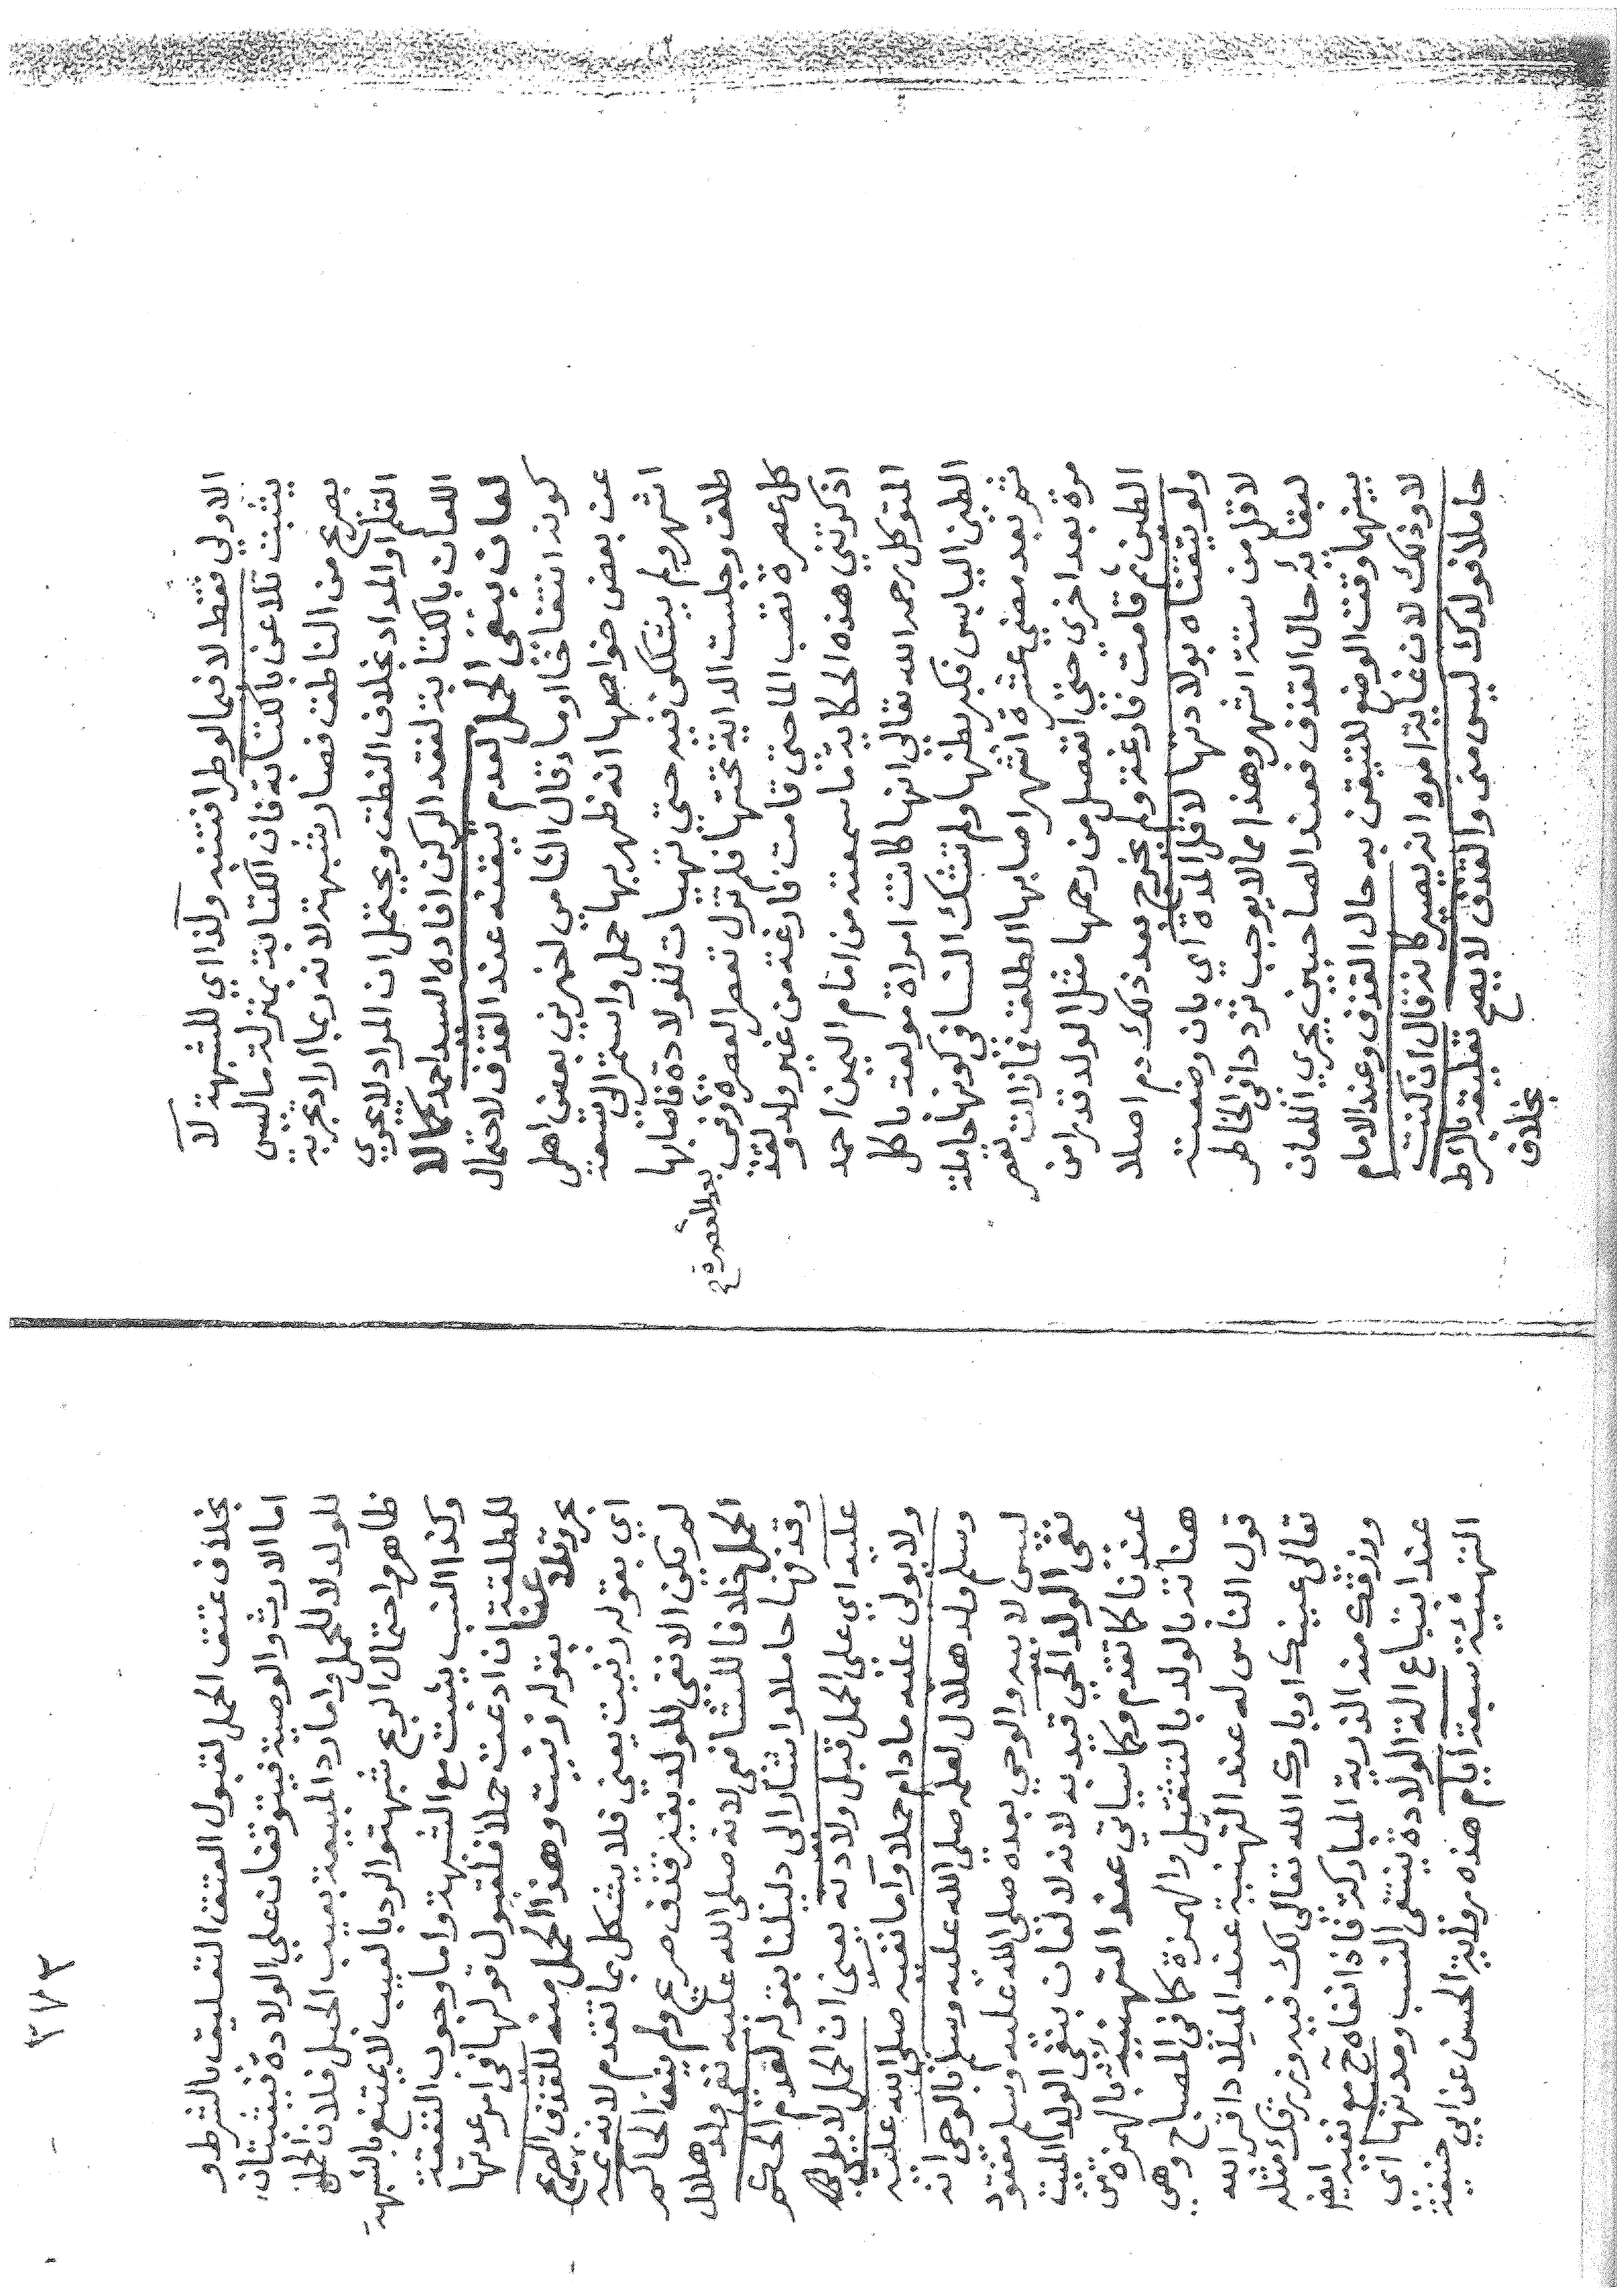 الاولي فقط لانها لو طرا فتنه ولذا اي للشبهة لا
يثبت تلاعن بالكتابة فان الكتابة بمنزلة ما ليس
بصريح من الناطق فصار شبهة لانه ربما اراد تجربة
القلم او المداد بخلاف النطق ويحتمل ان المراد لا يجري
اللعان بالكتابة لفقد الركن افاده السيد احمد كما لا
لعان بنفي الحمل لعدم تيقنه عند القذف لاحتمال
كونه انتفاخا او ما وقال الشامي اخبرني بعض اهلي
عن بعض خواصها انه ظهر بها حمل واستمر الي تسعة
اشهر ولم يشككن فيه حتي تهيات للولادة فاصابها
طلق وجلست الداية تحتها فلم تزل تعصر العصره وفي
بعد العصرة صح
كل عصرة تصب الما حتى قامت فارغة من غير ولد ولقد
اذكرتني هذه الحكاية ما سمعته من امام اليمن احمد
المتوكل رحمه الله تعالي انها كانت امراة مولعة باكل
الطين اليابس فكبر بطنها ولم تشك النسا في كونها حاملة
ثم بعد مضي عشرة اشهر اصابها الطلق فمازالت تعصر
مرة بعد اخري حتي انفصل من رحمها مثل الولد قدرا من
الطين ثم قامت فارغة ولم يخرج بعد ذلك دم اصلا
ولو تيقناه بولادتها لاقل المدة اي بان وضعت
لاقل من ستة اشهر وهذا مما لا يوجب تردد افي الخاطر
بقائه حال القذف فعند الصاحبين يجري اللعان
بينهما وقت الوضع للتيقن به حال القذف وعند الامام
لا وذلك لان غاية اموره انه يصير كانه قال ان كنت
حاملا فولدك ليس مني والقذف لا يصح تعليقه بالشرط
بخلاف
٣٧٣
بخلاف عتق الحمل لقبول العتق التعليق بالشرط و
اما الارث والوصية فيتوقفان علي الولادة فيثبتان
للولد لا للحمل واما رد المبيعة بعيب الحبل فلان الحمل
ظاهر واحتمال الريح شبهة والرد بالعيب لا يمتنع بالشبهة
وكذا النسب يثبت مع الشبهة واما وجوب النفقة
للمطلقة ان ادعت حملا فلقبول قولها في امر عدتها
عن بقوله زنيت وهذا الحمل منه للقذف الصريح
اي بقوله زنيت يعني فلا يشكل بما تقدم لانه ثمه
لم يكن الا نفي للولد بغير قذف صريح ولم ينف الحاكم
الحمل خلافا للشافعي لانه صلى الله عليه نفي ولد هلال
وقد قذفها حاملا واشار الى دليلنا بقوله لعدم الحكم
عليه اي علي الحمل قبل ولادته يعني ان الحمل لا يولى
ولا يولى عليه مادام حملا واما نفيه صلى الله عليه
وسلم ولد هلال لعلمه صلى الله عليه وسلم بالوحي انه
ليس لابيه والوحي بعده صلى الله عليه وسلم مفقود
نفي الولد الحي قيد به لانه لا لعان بنفي الولد الميت
عندنا كما تقدم وكما سياتي عند التهنية بالهمزة من
هنأته بالولد بالتثقيل والهمزة كما في المصباح وهي
قول الناس له عند التهنية عند الميلاد اقر الله
تعالى عينيك او بارك الله تعالى لك فيه ورزقك مثله
ورزقك منه الذرية المباركة فاذا نفاه ح مع نفيه ايضا
عند ابتياع الة الولادة ينتفي النسب ومدتها اي
التهنئة سبعة ايام هذه رواية الحسن عن ابي حنيفة